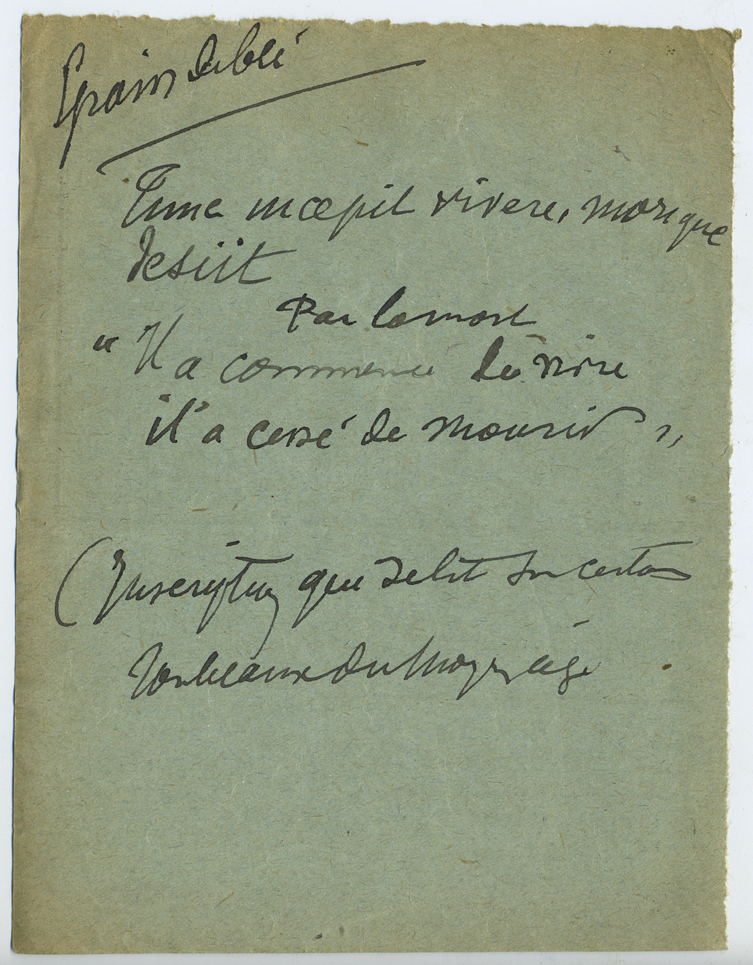 grains de blé
Tunc incepit vivere, morique
desiit
Par la mort
" Il a commencé de vivre
il a cessé de mourir "
(Inscription que se lit sur certains
tombeaux du Moyen âge